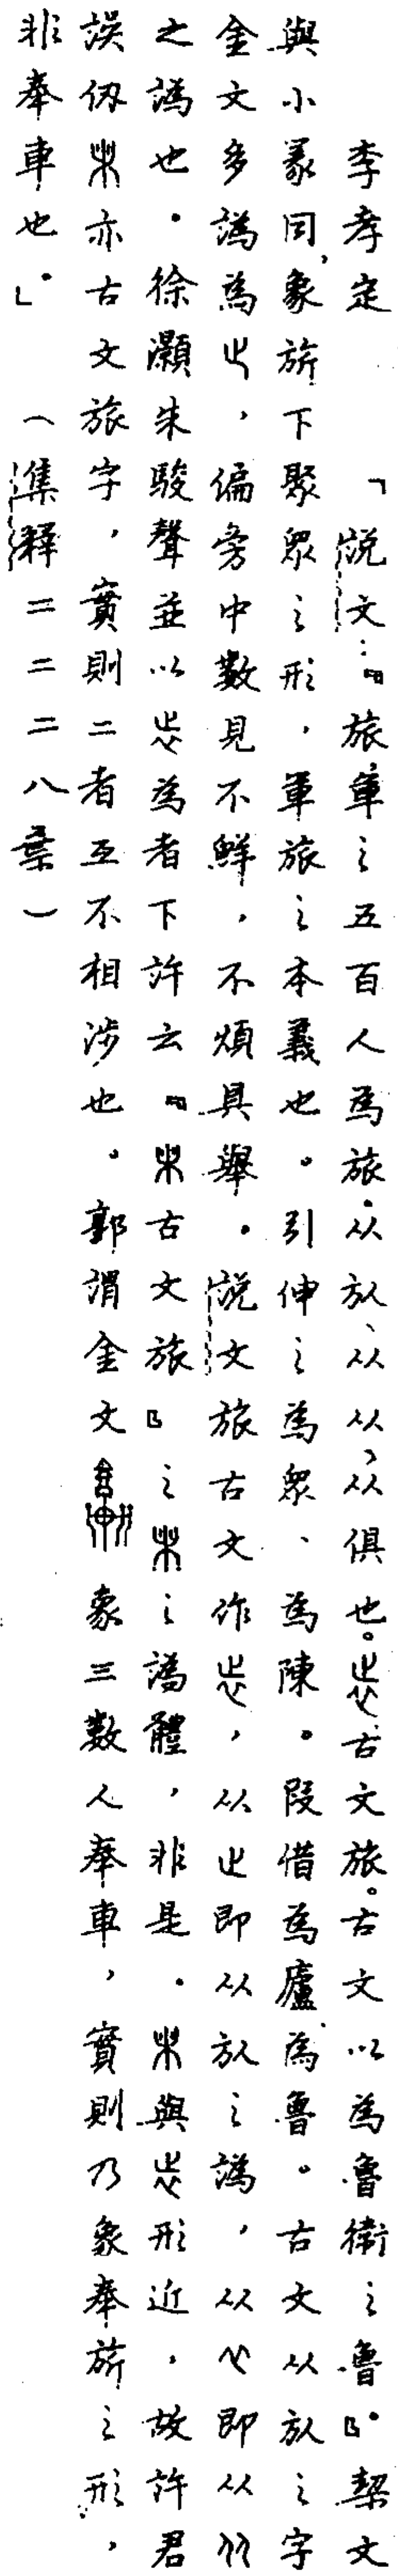 李孝定 「說文：『旅軍之五百人為旅。从㫃、从从、从俱也。㞥古文旅。古文以為魯衛之魯』。契文
與小篆同，象旂下聚眾之形，軍旅之本義也。引伸之為眾、為陳。叚借為廬為魯。古文从㫃之字
金文多譌為止，偏旁中數見不鮮，不煩具舉。說文旅古文作㞥，从止即从㫃之譌，从即从从
之譌也。徐灝朱駿聲並以㞥為者下許云『古文旅』之之譌體，非是。與㞥形近，故許君
誤仞亦古文旅字，實則二者互不相涉也。郭謂金文象三數人奉車，實則乃象奉旂之形，
非奉車也。」（集釋二二二八葉）